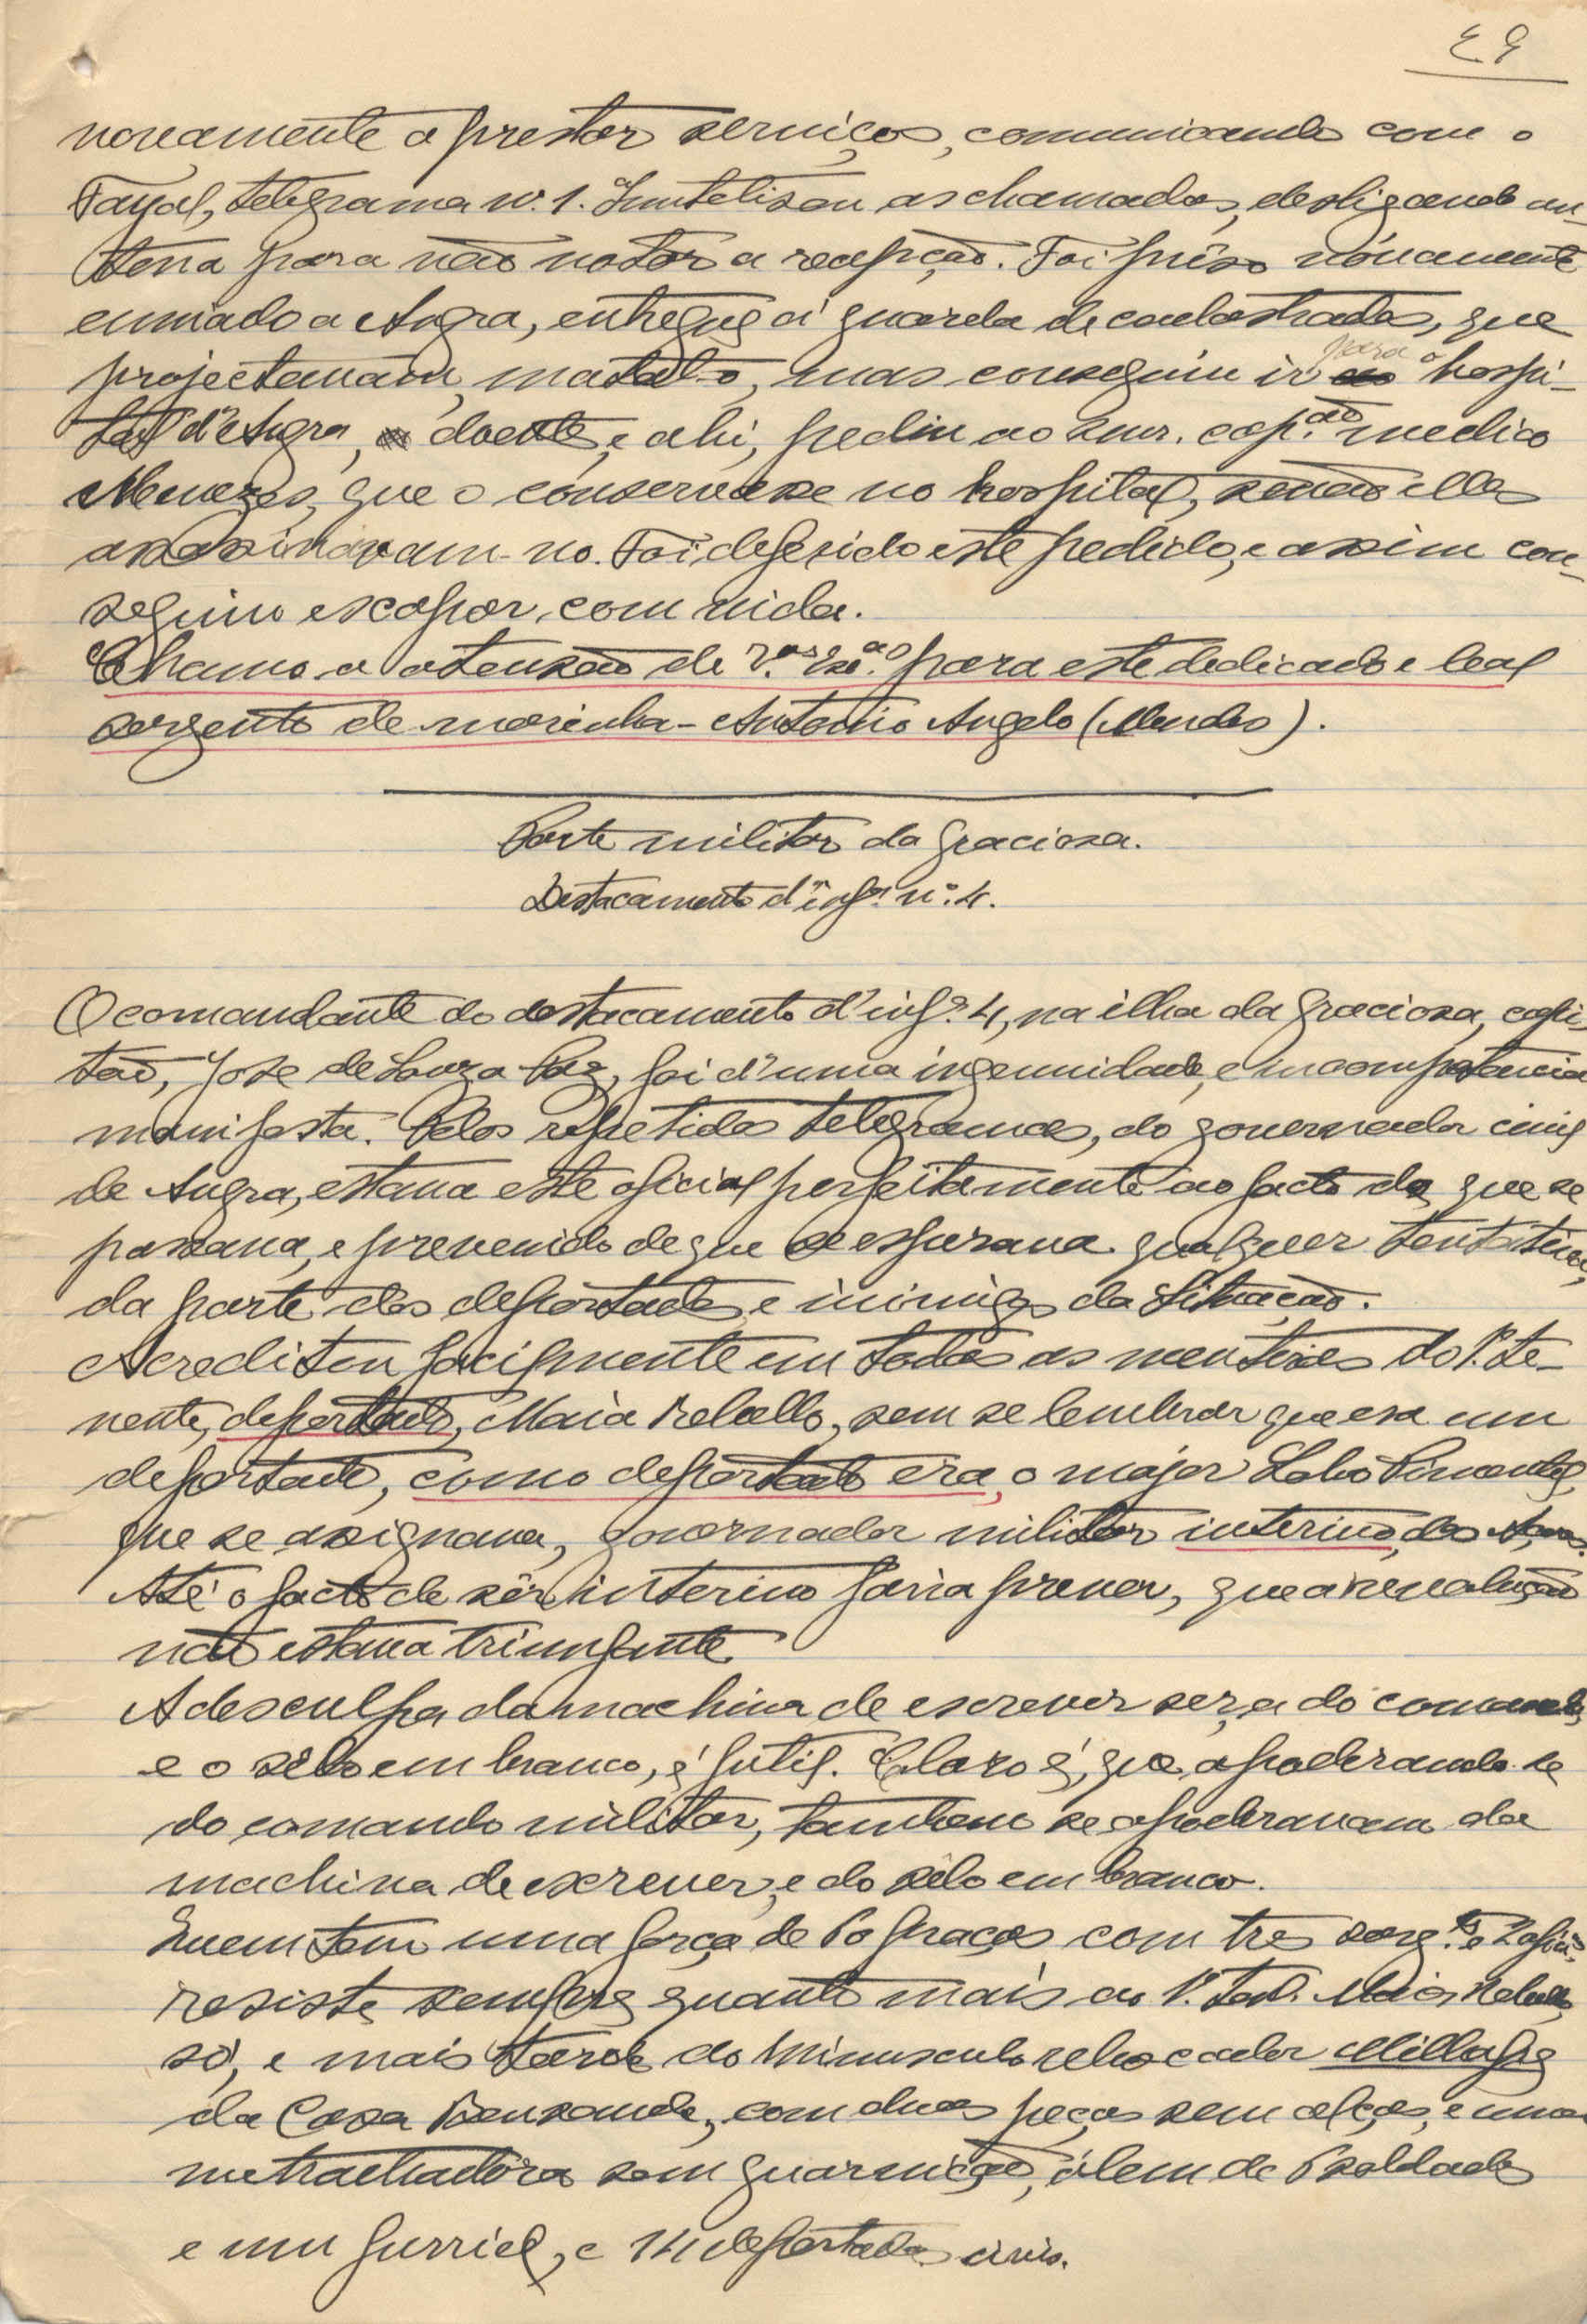 29
novamente a prestar serviços, comunicando com o
Fayal, telegrama n. 1. Inutelisou as chamadas, desligando an-
tena para não notar a recepção. Foi prêso nóvamente
enviado a Angra, entregue á guarda de cadastrados, que
projectavam matal-o, mas conseguiu ir para o hospi-
tal d'Angra, doente, e ahi, pediu ao Snr. cap.ão medico
Menezes, que o conservasse no hospital, senão elles
assassinavam-no. Foi deferido este pedido, e assim con-
seguiu escapar, com vida.
Chamo a atensão de V.as Ex.as para este dedicado e leal
sargento de marinha - Antonio Angelo (Mendes).
Parte militar da Graciosa.
Destacamento d'inf.a n.o 4.
O comandante do destacamento d'inf.a 4, na ilha da Graciosa, capi-
tão, José de Souza Paz, foi d'uma ingenuidade, e incompetencia
manifesta. Pelos repetidos telegramas, do governador civil
de Angra, estava este oficial perfeitamente ao facto do que se
passava, e prevenido de que se esperava qualquer tentativa,
da parte dos deportados e inimigos da Situação.
Acreditou facilmente em todas as mentiras do 1.o te-
nente, deportado, Maia Rebello, sem se lembrar que era um
deportado, como deportado era, o major Lobo Pimentel,
que se assignava, governador militar interino, dos
Até o facto de sêr interino faria prever, que a revolução
não estava triunfante.
A desculpa da machina de escrever ser, a do comando,
e o sêlo em branco, é futil. Claro é, que, apoderando-se
do comando militar, tambem se apoderavam da
machina de escrever, e do sêlo em branco.
Quem tem uma força de praças com tres sarg.tos e 2 ofici.
resiste, sempre, quanto mais ao 1.o Ten. Maia Rebello,
só, e mais tarde do minusculo rebocador Milhafre
da Casa Bensaude, com duas peças sem alças, e uma
metralhadora sem guarnição, álem de soldados
e um furriel, e 14 deportados civis.